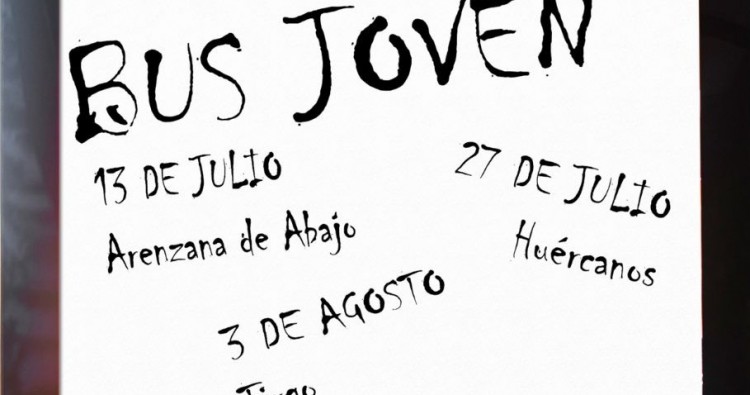 BUS JOVEN
13 DE JULIO
Arenzana de Abajo
27 DE JULIO
Huércanos
3 DE AGOSTO